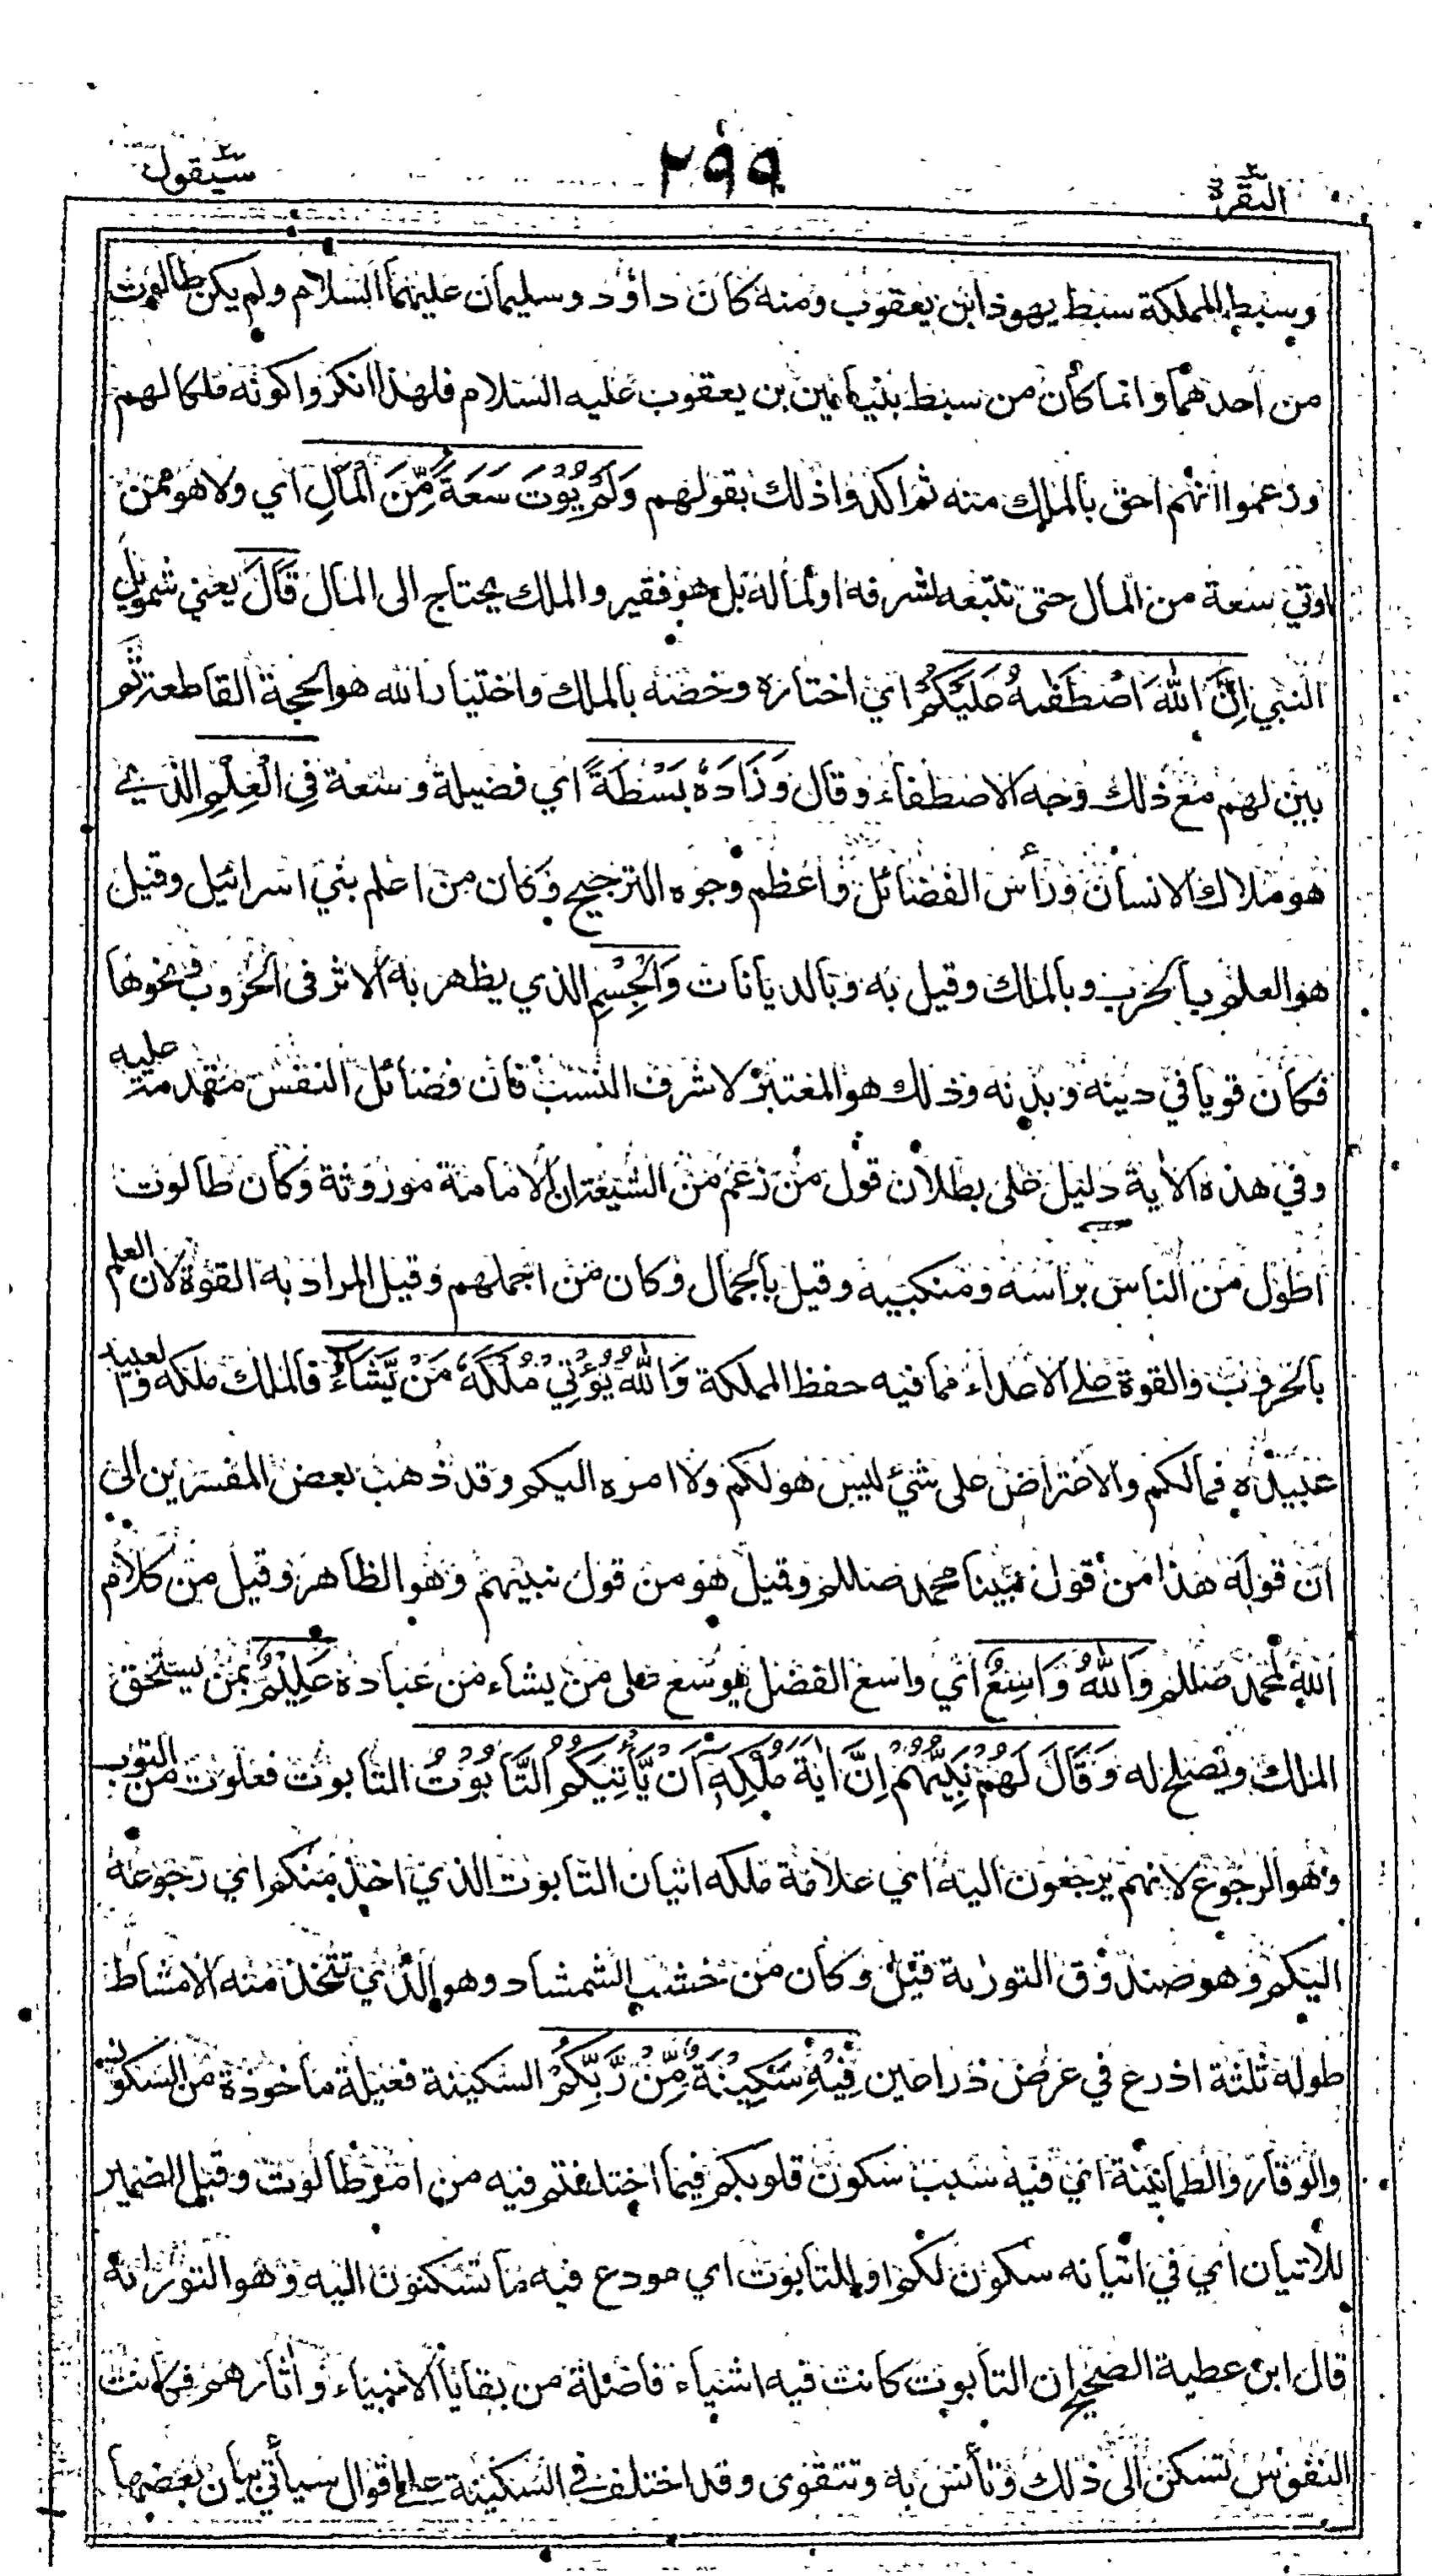 البقرة ٢
٢٩٩
سيقول ٢
وسبط المملكة سبط يهوذا بن يعقوب ومنه كان داؤد وسليمان عليهما السلام ولم يكن طالوت
من احدهما وانما كان من سبط بنيامين بن يعقوب عليه السلام فلهذا انكروا كونه ملكا لهم
وزعموا انهم احق بالملك منه ثم اكدوا ذلك بقولهم وَلَمْ يُؤْتَ سَعَةً مِّنَ الْمَالِ اي ولا هو ممن
اوتي سعة من المال حتى نتبعه لشرفه او لماله بل هو فقير والملك يحتاج الى المال قَالَ يعني شمويل
النبي اِنَّ اللهَ اصْطَفٰىهُ عَلَيْكُمْ اي اختاره وخصه بالملك واختيار الله هو الحجة القاطعة ثم
بين لهم مع ذلك وجه الاصطفاء وقال وَزَادَهٗ بَسْطَةً اي فضيلة وسعة فِي الْعِلْمِ الذي
هو ملاك الانسان ورأس الفضائل واعظم وجوه الترجيح وكان من اعلم بني اسرائيل وقيل
هو العلم بالحرب وبالملك وقيل به وبالديانات وَالْجِسْمِ الذي يظهر به الاثر في الحروب ونحوها
فكان قويا في دينه وبدنه وذلك هو المعتبر لا شرف النسب فان فضائل النفس متقدمة عليه
وفي هذه الاية دليل على بطلان قول من زعم من الشيعة ان الامامة موروثة وكان طالوت
اطول من الناس برأسه ومنكبيه وقيل بالجمال وكان من اجملهم وقيل المراد به القوة لان العلم
بالحروب والقوة على الاعداء مما فيه حفظ المملكة وَاللهُ يُؤْتِي مُلْكَهٗ مَنْ يَّشَاءُ فالملك ملكه والعبيد
عبيده فمالكم والاعتراض على شيء ليس هو لكم ولا امره اليكم وقد ذهب بعض المفسرين الى
ان قوله هذا من قول نبينا محمد صللم وقيل هو من قول نبيهم وهو الظاهر وقيل من كلام
الله لمحمد صللم وَاللهُ وَاسِعٌ اي واسع الفضل يوسع على من يشاء من عباده عَلِيْمٌ بمن يستحق
الملك ويصلح له وَقَالَ لَهُمْ نَبِيُّهُمْ اِنَّ اٰيَةَ مُلْكِهٖٓ اَنْ يَّأْتِيَكُمُ التَّابُوْتُ التابوت فعلوت من التوب
وهو الرجوع لانهم يرجعون اليه اي علامة ملكه اتيان التابوت الذي اخذ منكم اي رجوعه
اليكم وهو صندوق التورية قيل وكان من خشب الشمشاد وهو الذي تتخذ منه الامشاط
طوله ثلثة اذرع في عرض ذراعين فِيْهِ سَكِيْنَةٌ مِّنْ رَّبِّكُمْ السكينة فعيلة مأخوذة من السكون
والوقار والطمانينة اي فيه سبب سكون قلوبكم فيما اختلفتم فيه من امر طالوت وقيل الضمير
للاتيان اي في اتيانه سكون لكم او للتابوت اي مودع فيه ما تسكنون اليه وهو التوراة
قال ابن عطية الصحيح ان التابوت كانت فيه اشياء فاضلة من بقايا الانبياء واثارهم فكانت
النفوس تسكن الى ذلك وتأنس به وتتقوى وقد اختلف في السكينة على اقوال سيأتي بيان بعضها